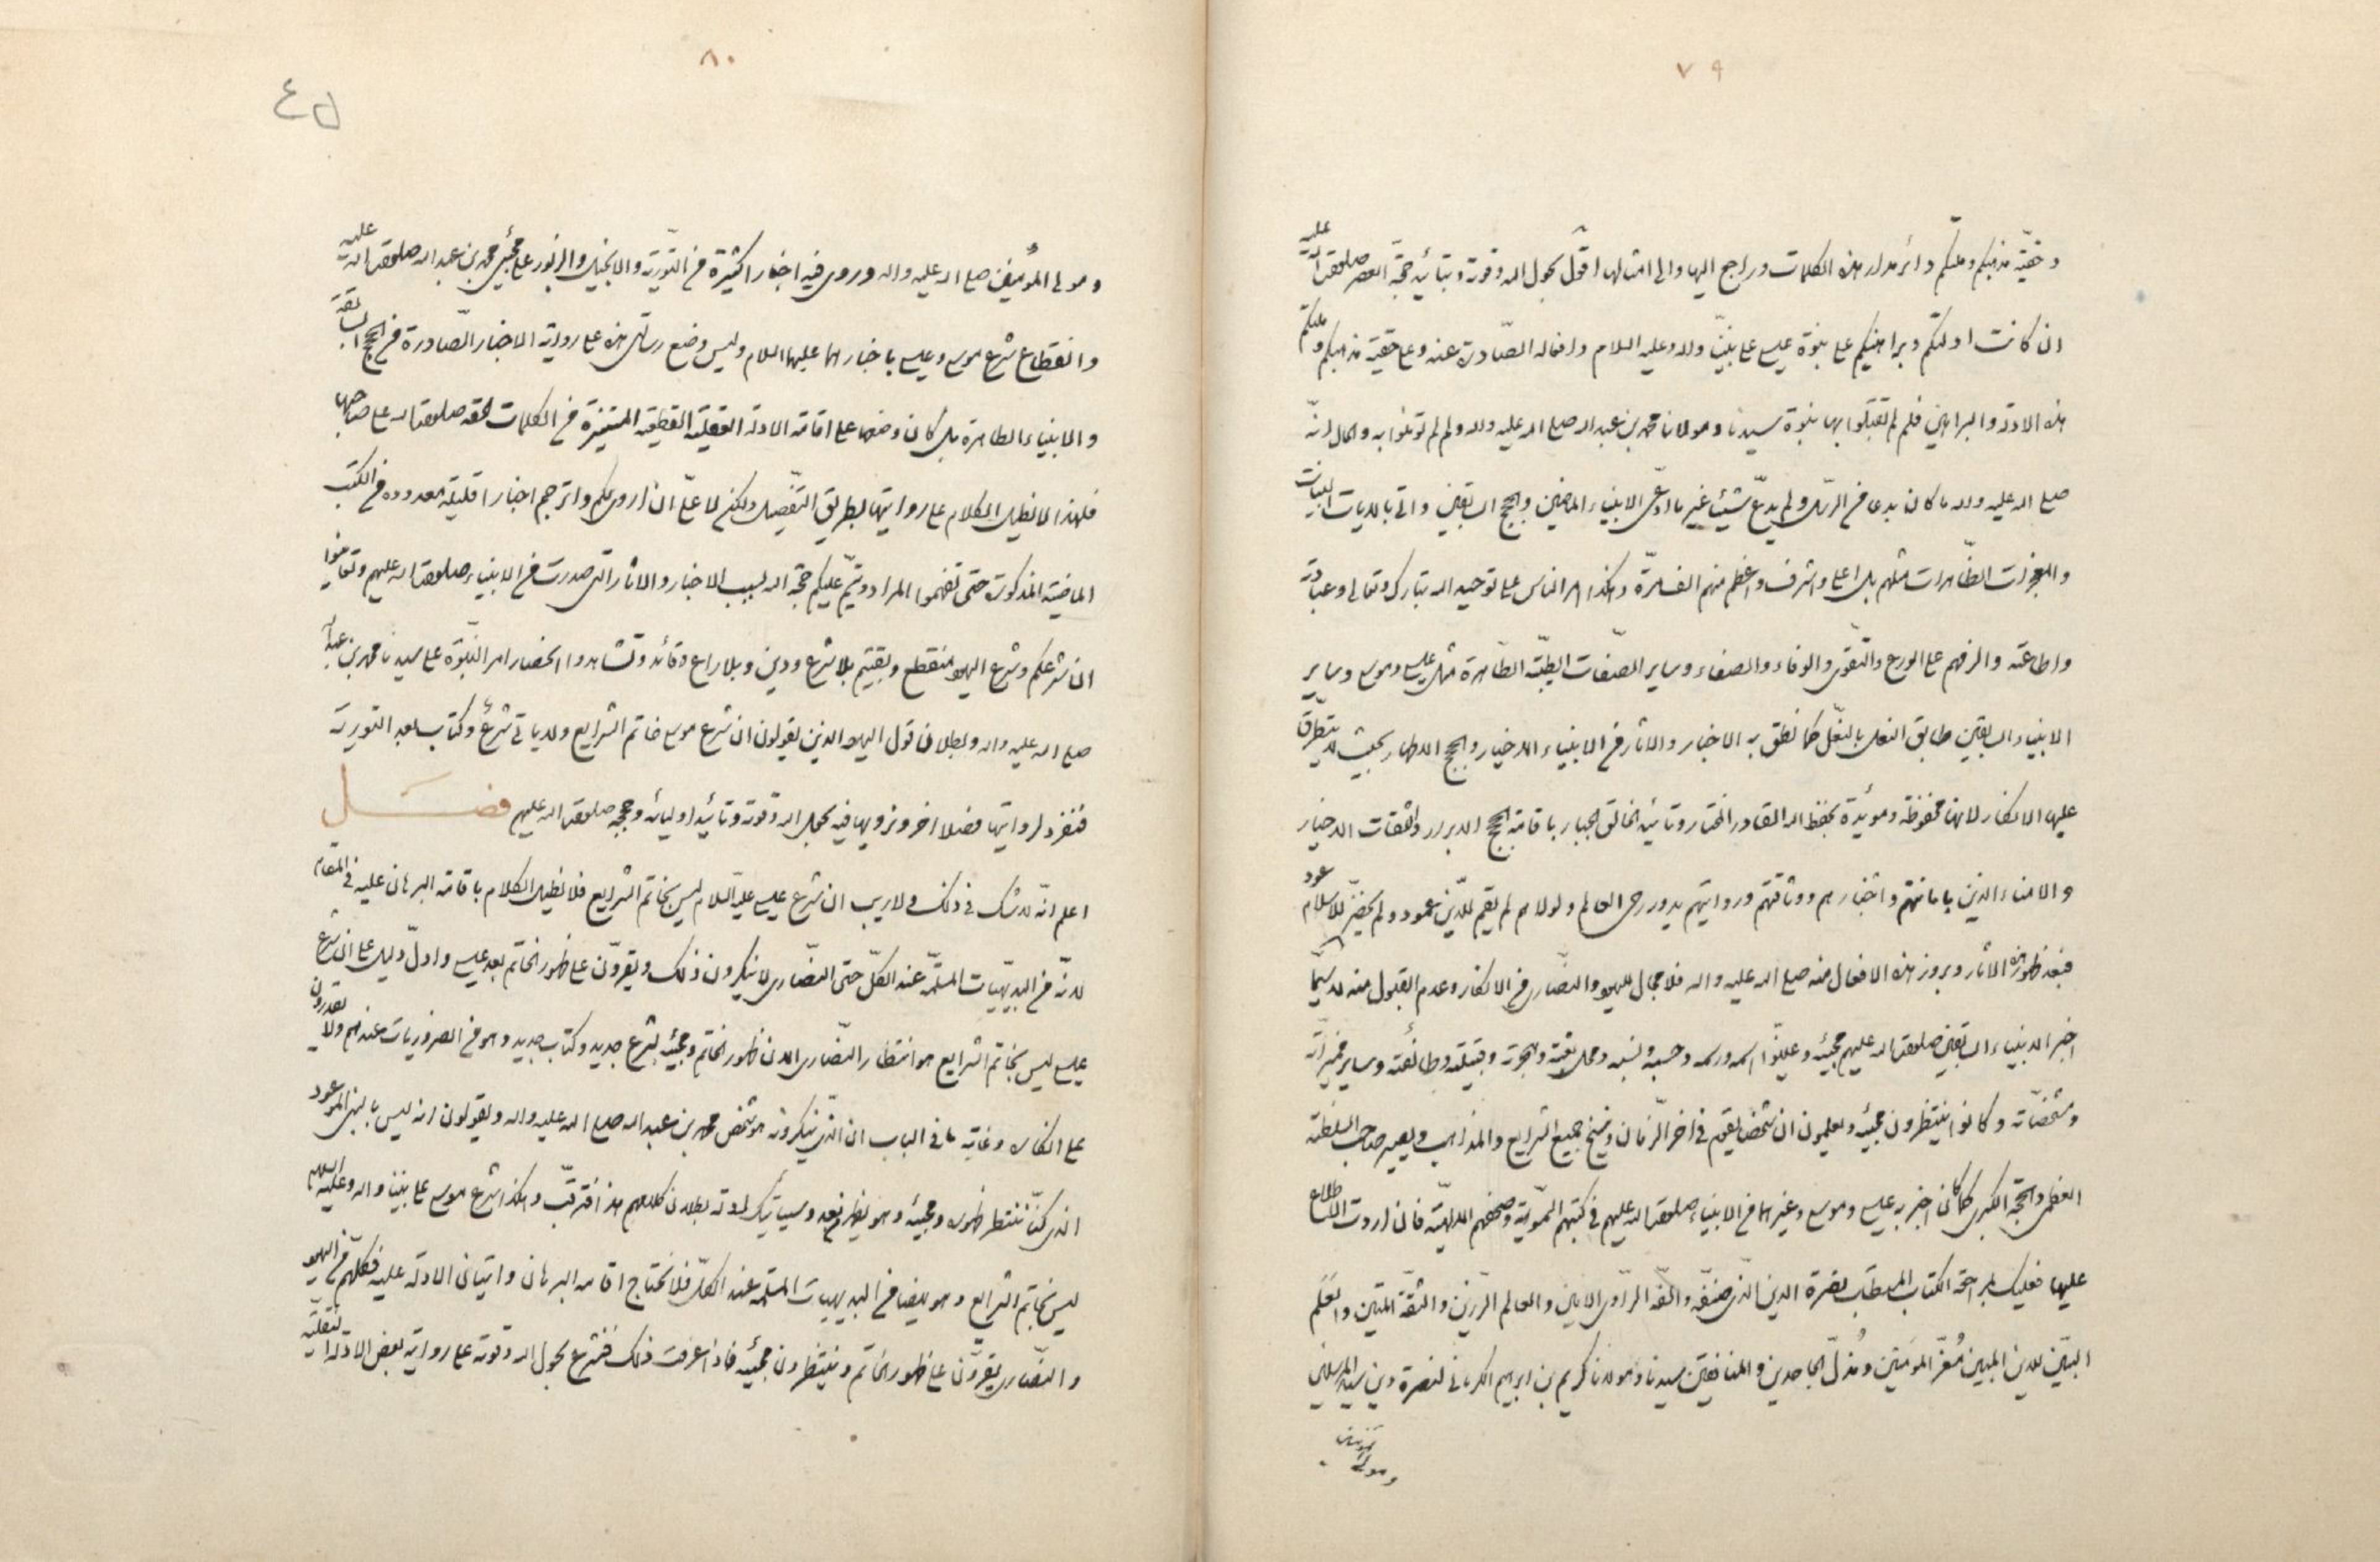 ٧٩
وحقيّة مذهبكم وملّتكم دائر مدار هذه الكلمات وراجع اليها والى امثالها اقول بحول الله وقوته وبتأييد حجّة العصر صلوات الله عليه
ان كانت ادلتكم وبراهينكم على نبوّة عيسى على نبيّنا واله وعليه السلام وافعاله الصّادرة عنه وعلى حقيّة مذهبكم وملتكم
هذه الادلّة والبراهين فلم لم تقبلوا بها نبوّة سيدنا ومولانا محمد بن عبد الله صلى الله عليه واله ولم لم تؤمنوا به والحال انّه
صلى الله عليه واله ما كان بدعا من الرّسل ولم يدّع شيئا غير ما ادّعى الانبياء الماضين والحجج السابقين واتى بالايات البينات
والمعجزات الظّاهرات مثلهم بل اعلى واشرف واعظم منهم الف مرّة وهكذا امر الناس على توحيد الله تبارك وتعالى وعبادته
واطاعته والزمهم على الورع والتّقوى والوفاء والصفاء وساير الصّفات الطيّبة الطّاهرة مثل عيسى وموسى وساير
الانبياء السابقين طابق النعل بالنّعل كما نطق به الاخبار والاثار من الانبياء الاخيار والحجج الاطهار بحيث لا يتطرّق
عليها الانكار لانها محفوظة ومؤيّدة بحفظ الله القادر المختار وتأييد الخالق الجبار باقامة الحجج الابرار والثقات الاخيار
والامناء الذين بامانتهم واخبارهم ووثاقتهم ورواياتهم يدور رحى العالم ولولاهم لم يقم للدّين عمود ولم يخضرّ للاسلام عود
فبعد ظهور هذه الاثار وبروز هذه الافعال منه صلى الله عليه واله فلا مجال لليهود والنصّارى من الانكار وعدم القبول منه لا سيّما
اخبر الانبياء السابقين صلوات الله عليهم بمجيئه وعيّنوا اسمه ورسمه وحسبه ونسبه ومحل بعثته وهجرته وقبيلته وطائفته وساير مميزاته
ومشخصّاته وكانوا ينتظرون مجيئه ويعلمون ان شخصا يقوم في اخر الزّمان وينسخ جميع الشرايع والمذاهب ويصير صاحب السلطنة
العظمى والحجّة الكبرى كما كان اخبر به عيسى وموسى وغيرهما من الانبياء صلوات الله عليهم في كتبهم السّموية وصحفهم الالهيّة فان اردت الاطلاع
عليها فعليك بمراجعة الكتاب المستطاب نصرة الدين الّذى صنّفه والّفه الرّاوى الامين والعالم الرّزين والثقّة المتين والعَلَم
البيّن للدين المبين مُعزّ المؤمنين ومُذلّ الجاحدين والمنافقين سيدنا ومولانا كريم بن ابرهيم الكرمانى لنصرة دين سيد المرسلين
ومولى المؤمنين
٨٠
٤٥
ومولى المؤمنين صلى الله عليه واله وروى فيه اخبارا كثيرة من التّورية والانجيل والزبور على مجئ محمد بن عبد الله صلوات الله عليه
وانقطاع شرع موسى وعيسى باخبارهما عليهما السلام وليس وضع رسالتى هذه على رواية الاخبار الصّادرة من الحجج السابقة
والانبياء الطاهرة بل كان وضعها على اقامة الادلة العقليّة القطعيّة المستنيرة من الكلمات الحقة صلوات الله على صاحبها
فلهذا لا نطيل الكلام على روايتها بطريق التفّصيل ولكن لا علىّ ان اروى لكم واترجم اخبارا قليلة معدودة من الكتب
الماضية المذكورة حتى تفهموا المراد ويتمّ عليكم حجّة الله بسبب الاخبار والاثار التى صدرت من الانبياء صلوات الله عليهم وتعاينوا
ان شرعكم وشرع اليهود منقطع وبقيتم بلا شرع ودين وبلا راع وقائد وتشاهدوا انحصار امر النّبوّة على سيدنا محمد بن عبد الله
صلى الله عليه واله وبطلان قول اليهود الذين يقولون ان شرع موسى خاتم الشرايع ولا ياتى شرع وكتاب بعد التورية
فنفرد لروايتها فصلا اخر ونرويها فيه بحول الله وقوته وتأييد اوليائه وحججه صلوات الله عليهم فصــل
اعلم انّه لا شك في ذلك ولا ريب ان شرع عيسى عليه السّلام ليس بخاتم الشرايع فلا نطيل الكلام باقامة البرهان عليه في المقام
لانّه من البديهيّات المسلّمة عند الكلّ حتى النصّارى لا ينكرون ذلك ويقرّون على ظهور الخاتم بعد عيسى وادلّ دليل على ان شرع
عيسى ليس بخاتم الشرايع هو انتظار النصّارى الان ظهور الخاتم ومجيئه بشرع جديد وكتاب جديد وهو من الضروريات عندهم ولا يقدرون
على انكاره وغاية ما في الباب ان الّذى ينكرونه هو شخص محمد بن عبد الله صلى الله عليه واله ويقولون انه ليس بالنبى الموعود
الذى كنّا ننتظر ظهوره ومجيئه وهو يظهر بعد وسيأتيك ادلّة بطلان كلامهم هذا فترقّب وهكذا شرع موسى على نبيّنا واله وعليه السلام
ليس بخاتم الشرايع وهو ايضا من البديهيات المسلمة عند الكلّ فلا نحتاج اقامة البرهان واتيان الادلّة عليه فكلّهم من اليهود
والنصّارى يقرّون على ظهور الخاتم وينتظرون مجيئه فاذا عرفت ذلك فنشرع بحول الله وقوته على رواية بعض الادلّة النقليّة